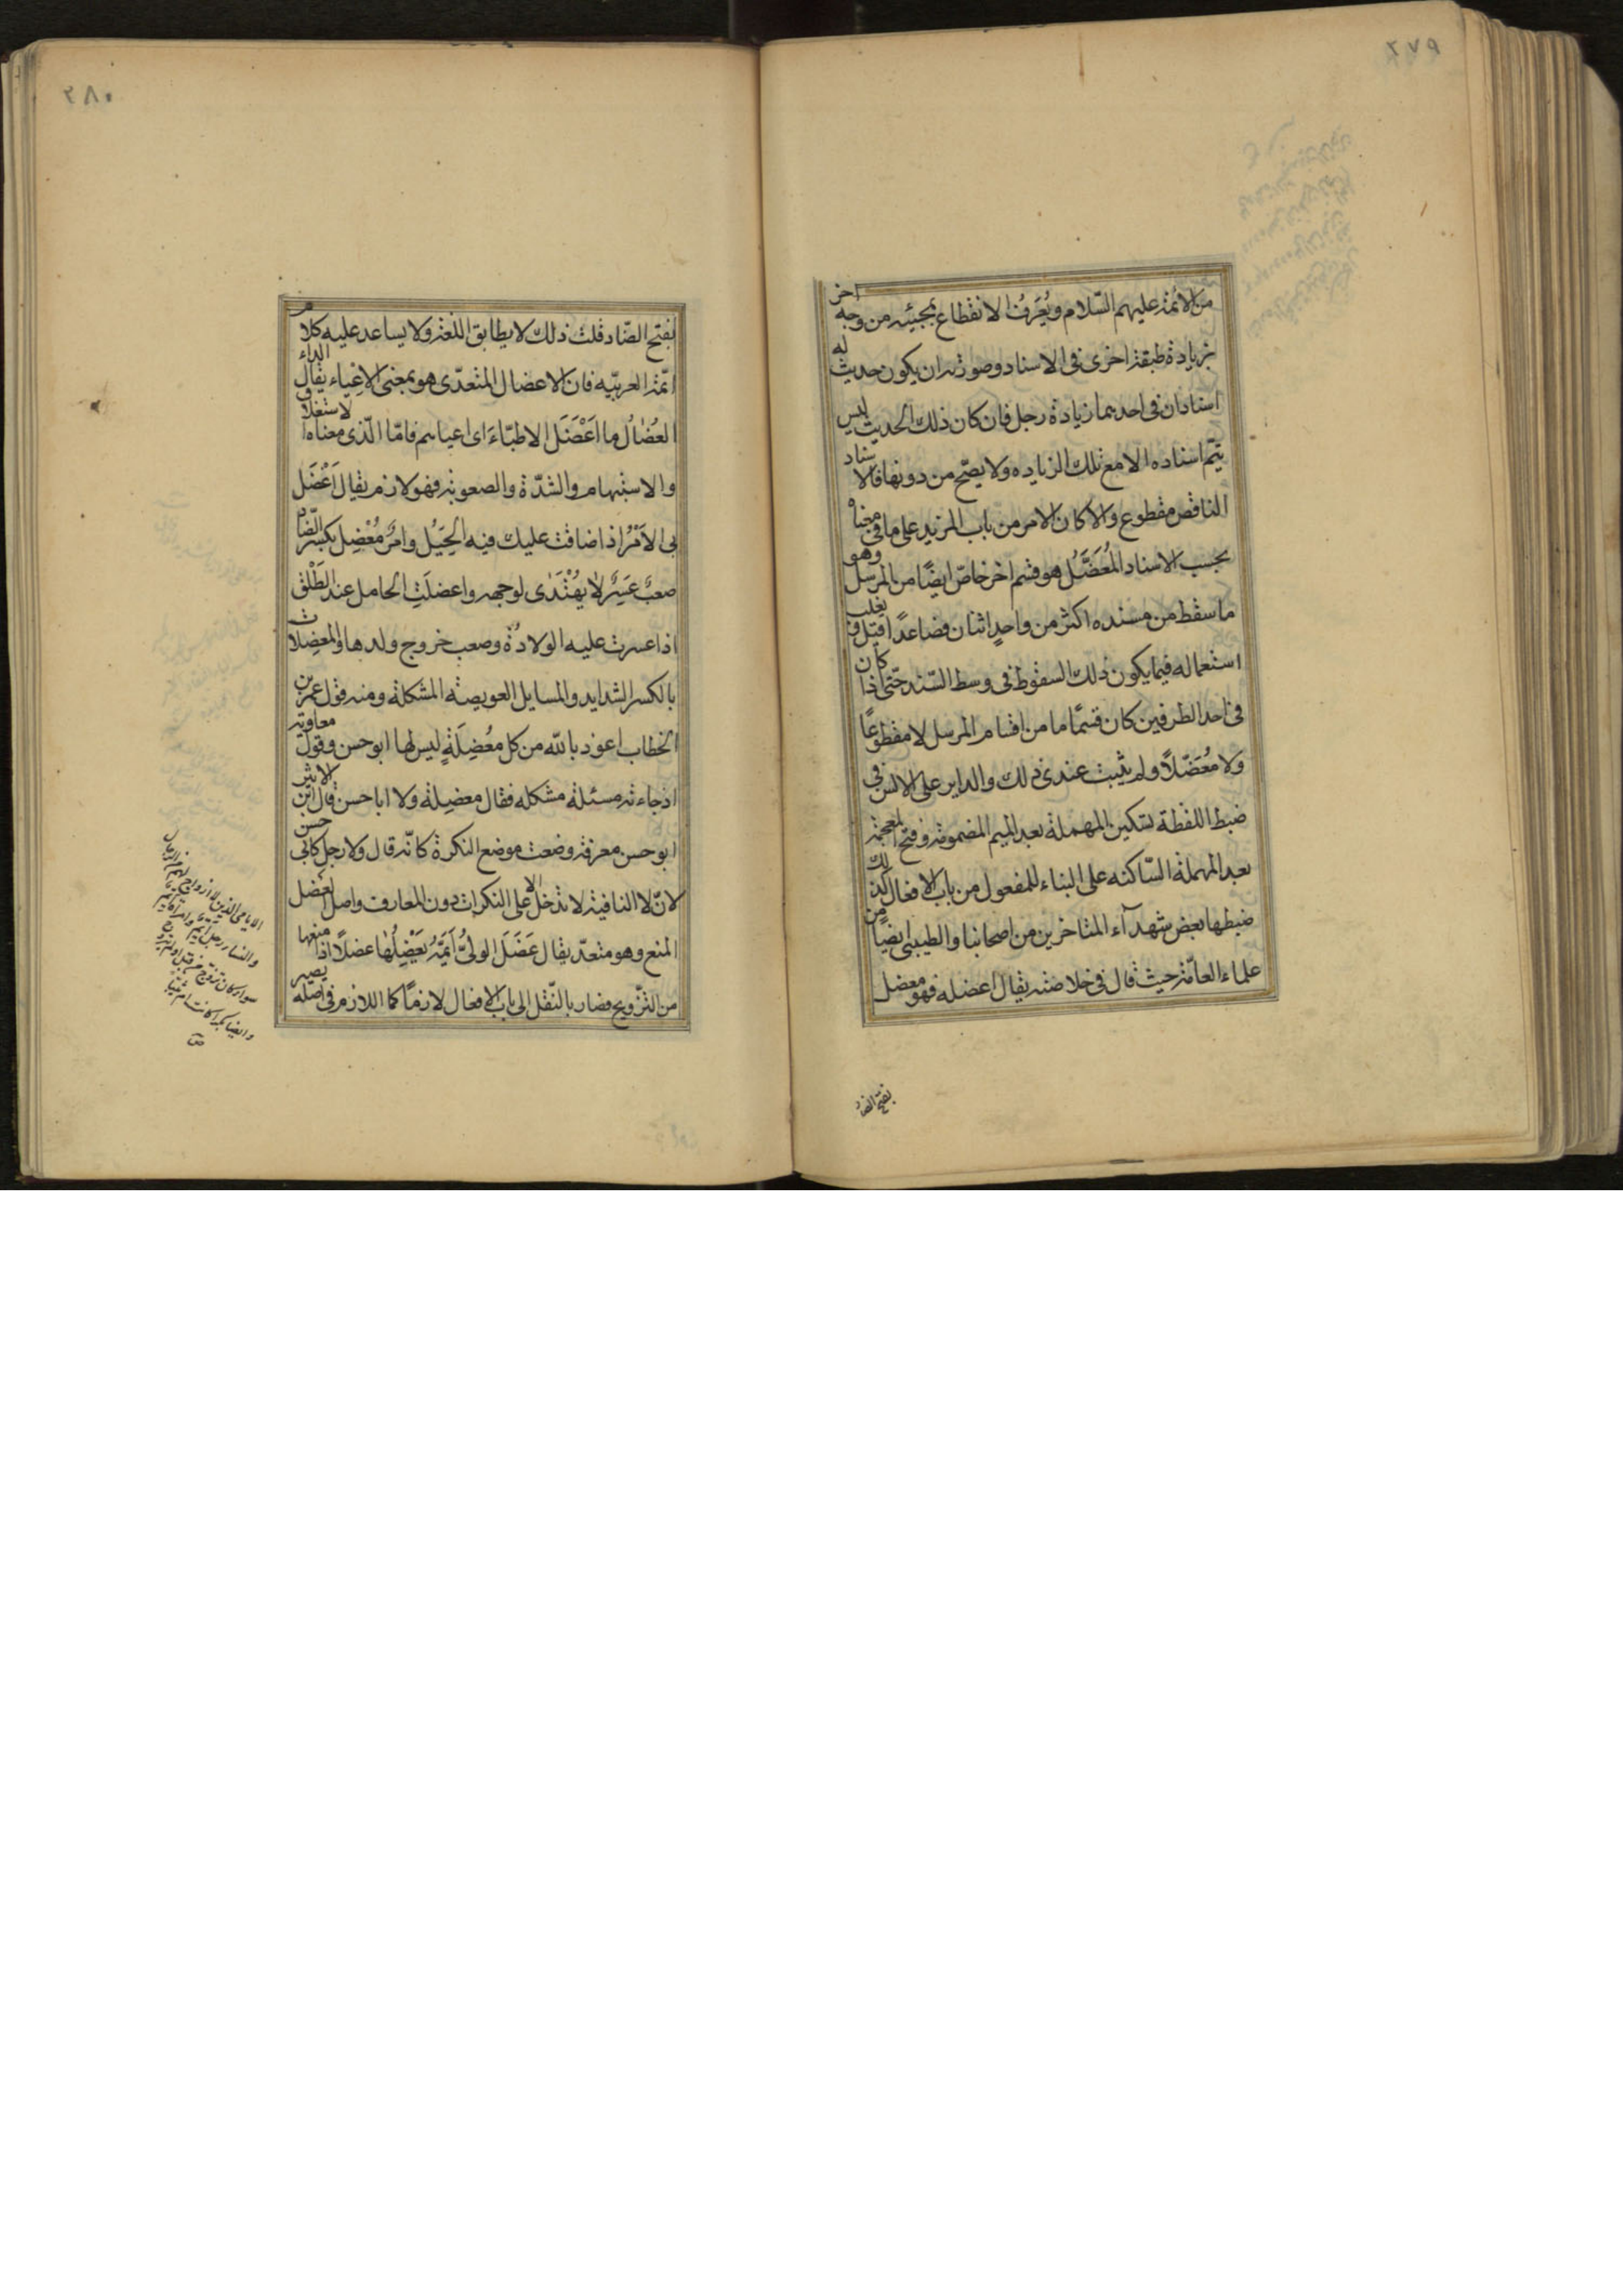 ٢٧٩
من الائمة عليهم السّلام ويُعرَفُ الانقطاع بمجيئه من وجه اخر
بزيادة طبقة اخرى فى الاسناد وصورته ان يكون حديث له
اسنادان فى احدهما زيادة رجل فان كان ذلك الحديث ليس
يتمّ اسناده الا مع تلك الزياده ولا يصحّ من دونها فالاسناد
الناقص مقطوع والا كان الامر من باب المزيد على ما فى معناه
بحسب الاسناد المُعضَلُ هو قسم اخر خاصّ ايضًا من المرسل وهو
ما سقط من مسنده اكثر من واحدٍ اثنان فصاعدًا قيل ويغلب
استعماله فيما يكون ذلك السقوط فى وسط السّند حتّى اذا كان
فى احد الطرفين كان قسمًا ما من اقسام المرسل لا مقطوعًا
ولا مُعضَلاً ولم يثبت عندى ذلك والداير على الالسن فى
ضبط اللفظة بتسكين المهملة بعد الميم المضمومة وفتح المعجمة
بعد المهملة السّاكنه على البناء للمفعول من باب الافعال كذلك
ضبطها بعض شهدآء المتاخرين من اصحابنا والطيبى ايضًا من
علماء العامّة حيث قال فى خلاصته يقال اعضله فهو معضل
بفتح الضاد
٢٨٠
بفتح الضّاد قلت ذلك لا يطابق اللغة ولا يساعد عليه كلام
ائمّة العربيّه فان الاعضال المتعدّى هو بمعنى الاعياء يقال الداء
العُضالُ ما اَعْضَلَ الاطبّاءَ اى اعياهم فامّا الّذى معناه الاستغلاق
والاستبهام والشدّة والصعوبة فهو لازم يقال اَعْضَلَ
بى الاَمْرُ اذا ضاقت عليك فيه الحِيَلُ وامرٌ مُعْضِل بكسر الضّاد
صعبٌ عَسِرٌ لا يُهْتَدى لوجهه واعضلَتِ الحامل عند الطَلْق
اذا عسرت عليه الولادُة وصعب خروج ولدها والمعضِلات
بالكسر الشدايد والمسايل العويصة المشكلة ومنه قول عمر بن
الخطاب اعوذ بالله من كل مُعْضِلَةٍ ليس لها ابو حسن وقول معاوية
اذ جاءته مسئلة مشكله فقال معضِلة ولا ابا حسن قال ابن الاثير
ابو حسن معرفة وضعت موضع النكرة كانّه قال ولا رجل كابى حسن
لانّ لا النافية لا تدخل الا على النكرات دون المعارف واصل العضل
المنع وهو متعدّ يقال عَضَلَ الولىُّ اَيِّمَهُ يَعْضِلُها عضلاً اذا منعها
من التّزويج فصار بالنّقل الى باب الافعال لازمًا كما اللازم فى اصله يصير
الايامى الذين لا ازواج لهم من الرجال
والنساء رجل ايّم وامراة ايّم
سواء كان تزوج من قبل او لم يتزوج
وايضا بكرا كانت ام ثيبا